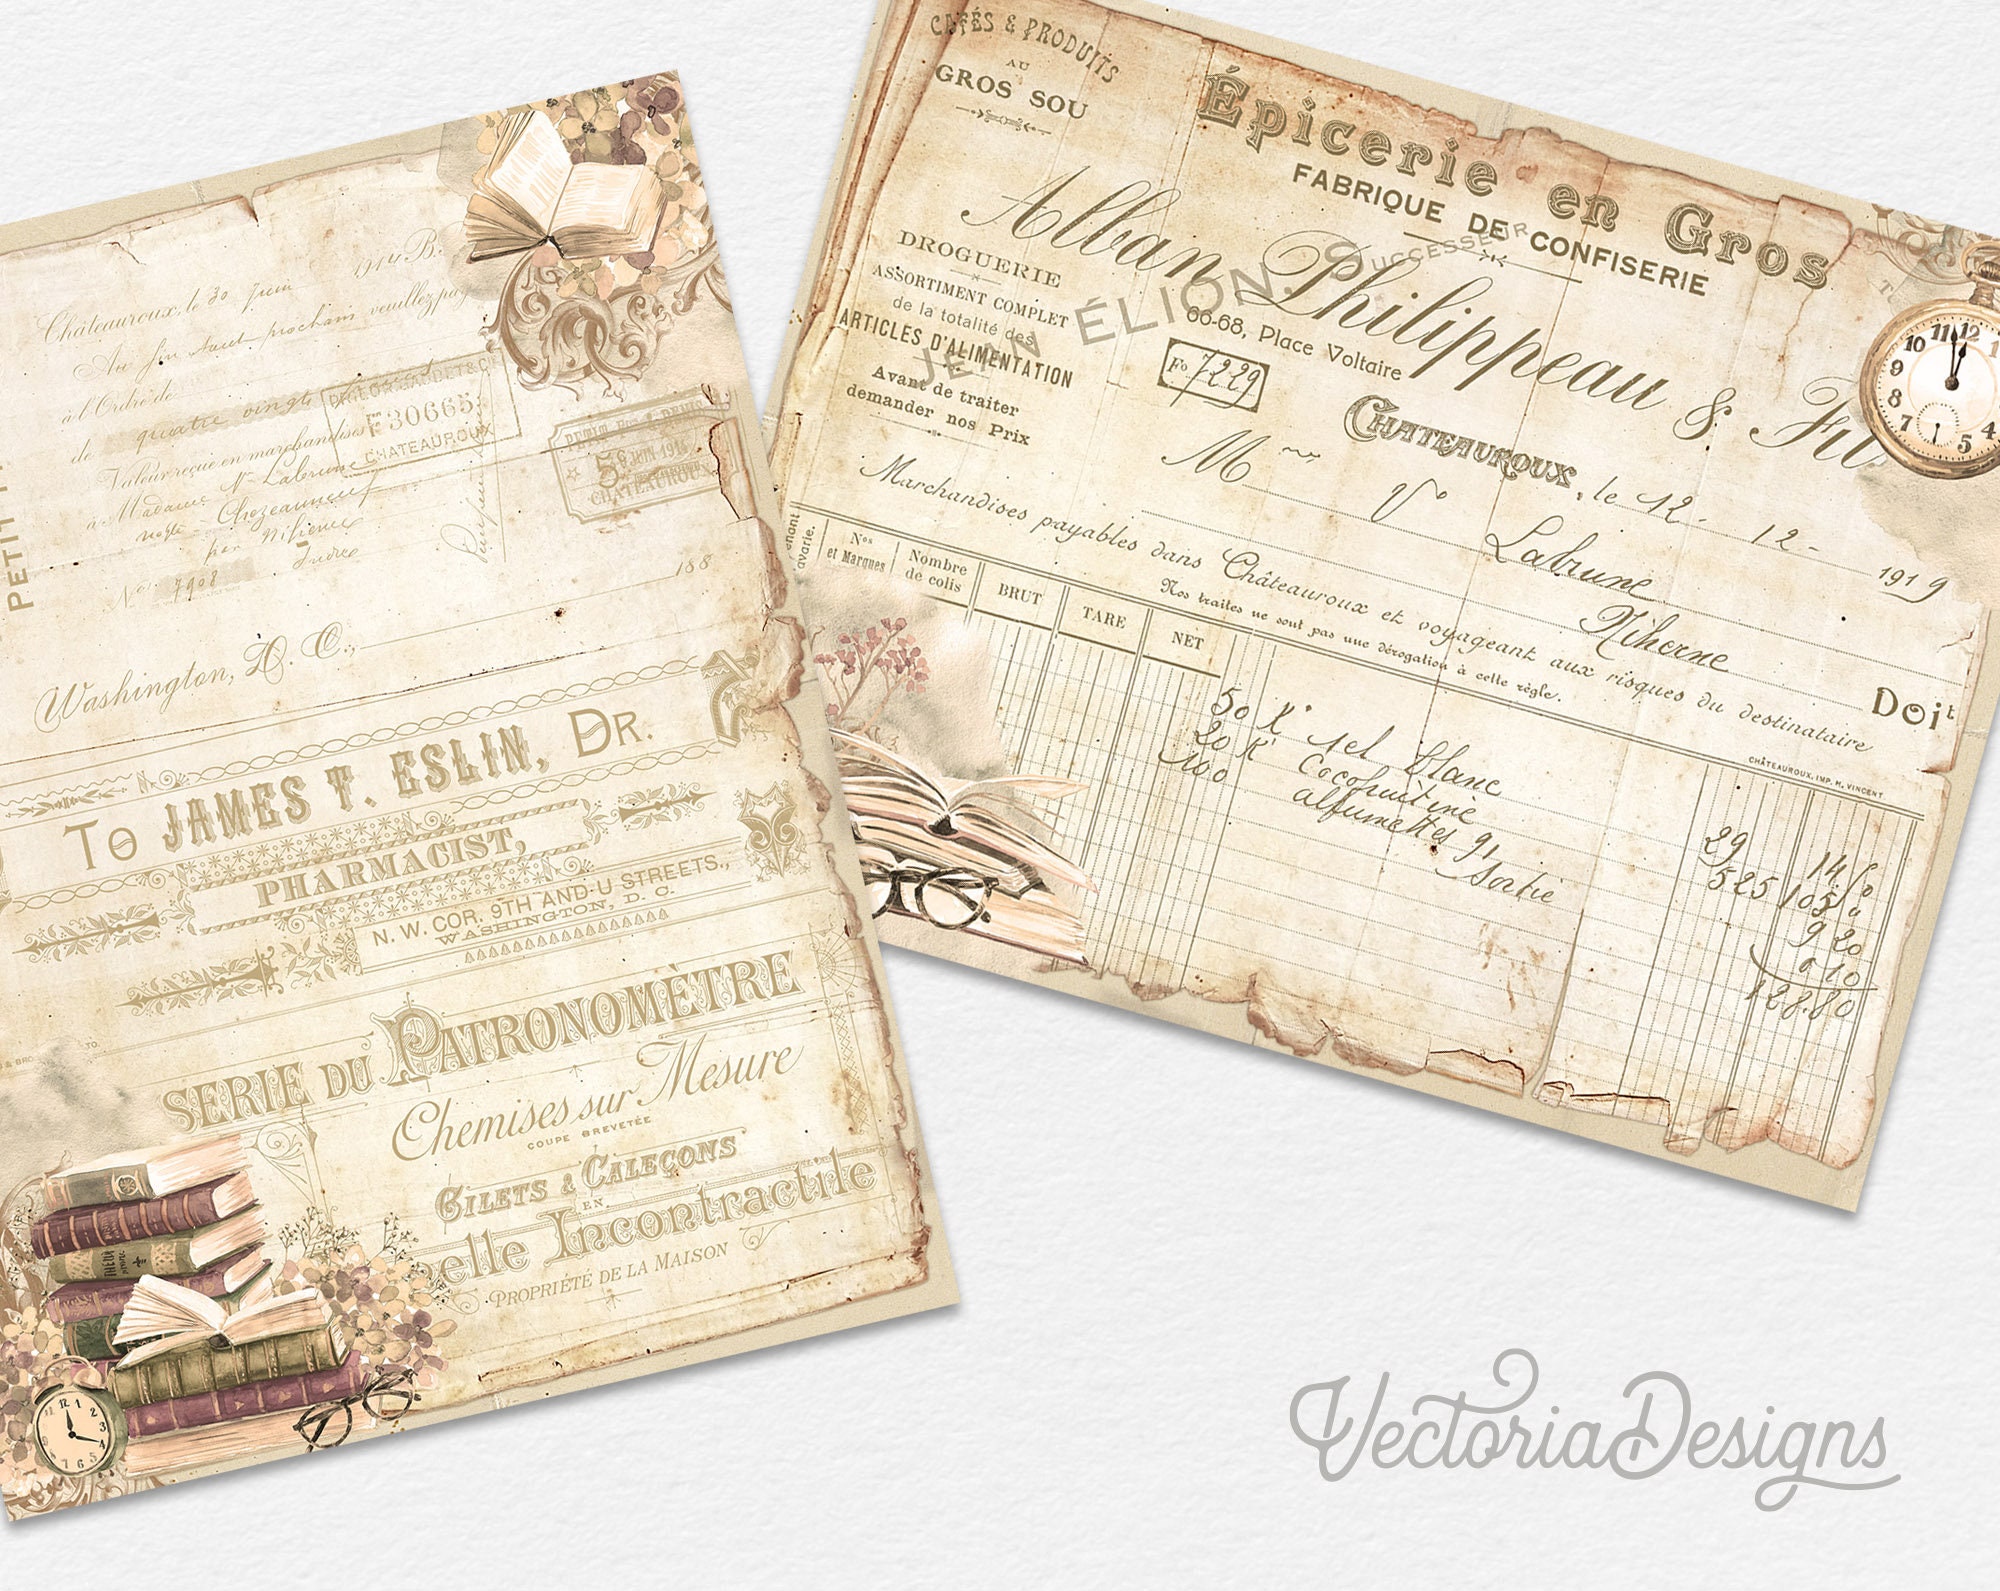 Châteauroux, le 30 Juin 1914 B.
Au fin Aout prochain veuillez payer
à l'Ordre de
de quatre vingt
Valeur reçue en marchandises
à Madame Vve Labrune
négte - Chezeauneuf
par Niherne
Indre
Nos 7908
30665
CHATEAUROUX
5
JUIN 1914
CHATEAUROUX
188
Washington, D. C.,
To JAMES T. ESLIN, DR.
PHARMACIST,
N. W. COR. 9TH AND U STREETS,
WASHINGTON, D. C.
SERIE DU PATRONOMÈTRE
Chemises sur Mesure
COUPE BREVETÉE
GILETS & CALEÇONS
EN
elle Incontractile
PROPRIÉTÉ DE LA MAISON
CAFÉS & PRODUITS
AU
GROS SOU
DROGUERIE
ASSORTIMENT COMPLET
de la totalité des
ARTICLES D'ALIMENTATION
Avant de traiter
demander nos Prix
Épicerie en Gros
FABRIQUE DE CONFISERIE
Alban Philippeau & Fils
JEAN ÉLION. SUCCESSEUR
66-68, Place Voltaire
Fo 7229
CHATEAUROUX, le 12 - 12 - 1919
M me Ve Labrune
Niherne
Doit
Marchandises payables dans Châteauroux et voyageant aux risques du destinataire
Nos traites ne sont pas une dérogation à cette règle.
CHÂTEAUROUX, IMP. H. VINCENT
Nos et Marques
Nombre de colis
BRUT
TARE
NET
50 K° sel blanc 29 14 50
20 K° 525 105
100 allumettes 91 9 20
Sortie 0 10
128.80
11 12 1
10
9
8
7 6 5 4
VectoriaDesigns